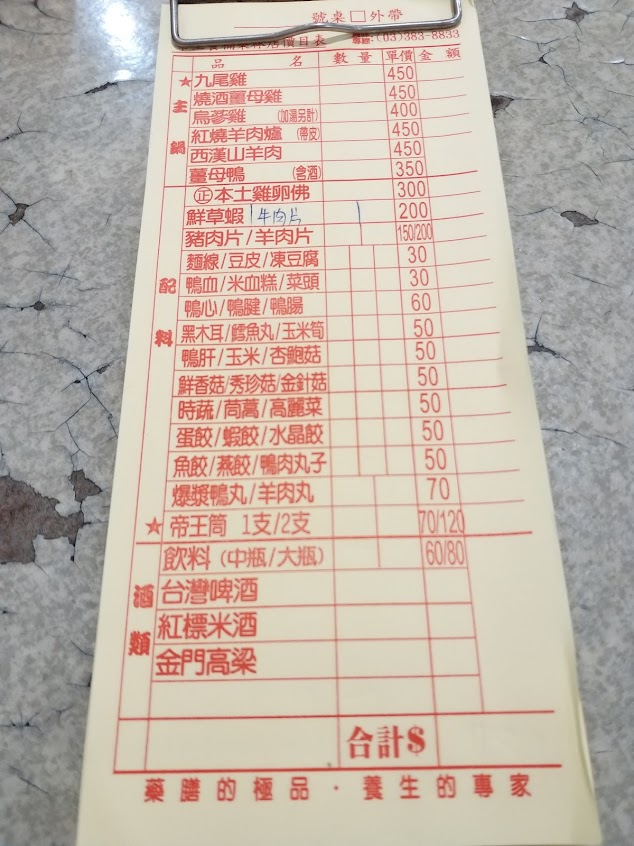 號桌□外帶
店價目表 (03)383-8833
品名 數量 單價 金額
主鍋
★九尾雞 450
燒酒薑母雞 450
烏蔘雞 (加湯另計) 400
紅燒羊肉爐 (帶皮) 450
西漢山羊肉 450
薑母鴨 (含酒) 350
配料
㊣本土雞卵佛 300
鮮草蝦 | 牛肉片 | 200
豬肉片/羊肉片 150/200
麵線/豆皮/凍豆腐 30
鴨血/米血糕/菜頭 30
鴨心/鴨腱/鴨腸 60
黑木耳/鱈魚丸/玉米筍 50
鴨肝/玉米/杏鮑菇 50
鮮香菇/秀珍菇/金針菇 50
時蔬/茼蒿/高麗菜 50
蛋餃/蝦餃/水晶餃 50
魚餃/燕餃/鴨肉丸子 50
爆漿鴨丸/羊肉丸 70
★帝王筒 1支/2支 70/120
酒類
飲料(中瓶/大瓶) 60/80
台灣啤酒
紅標米酒
金門高梁
合計$
藥膳的極品·養生的專家